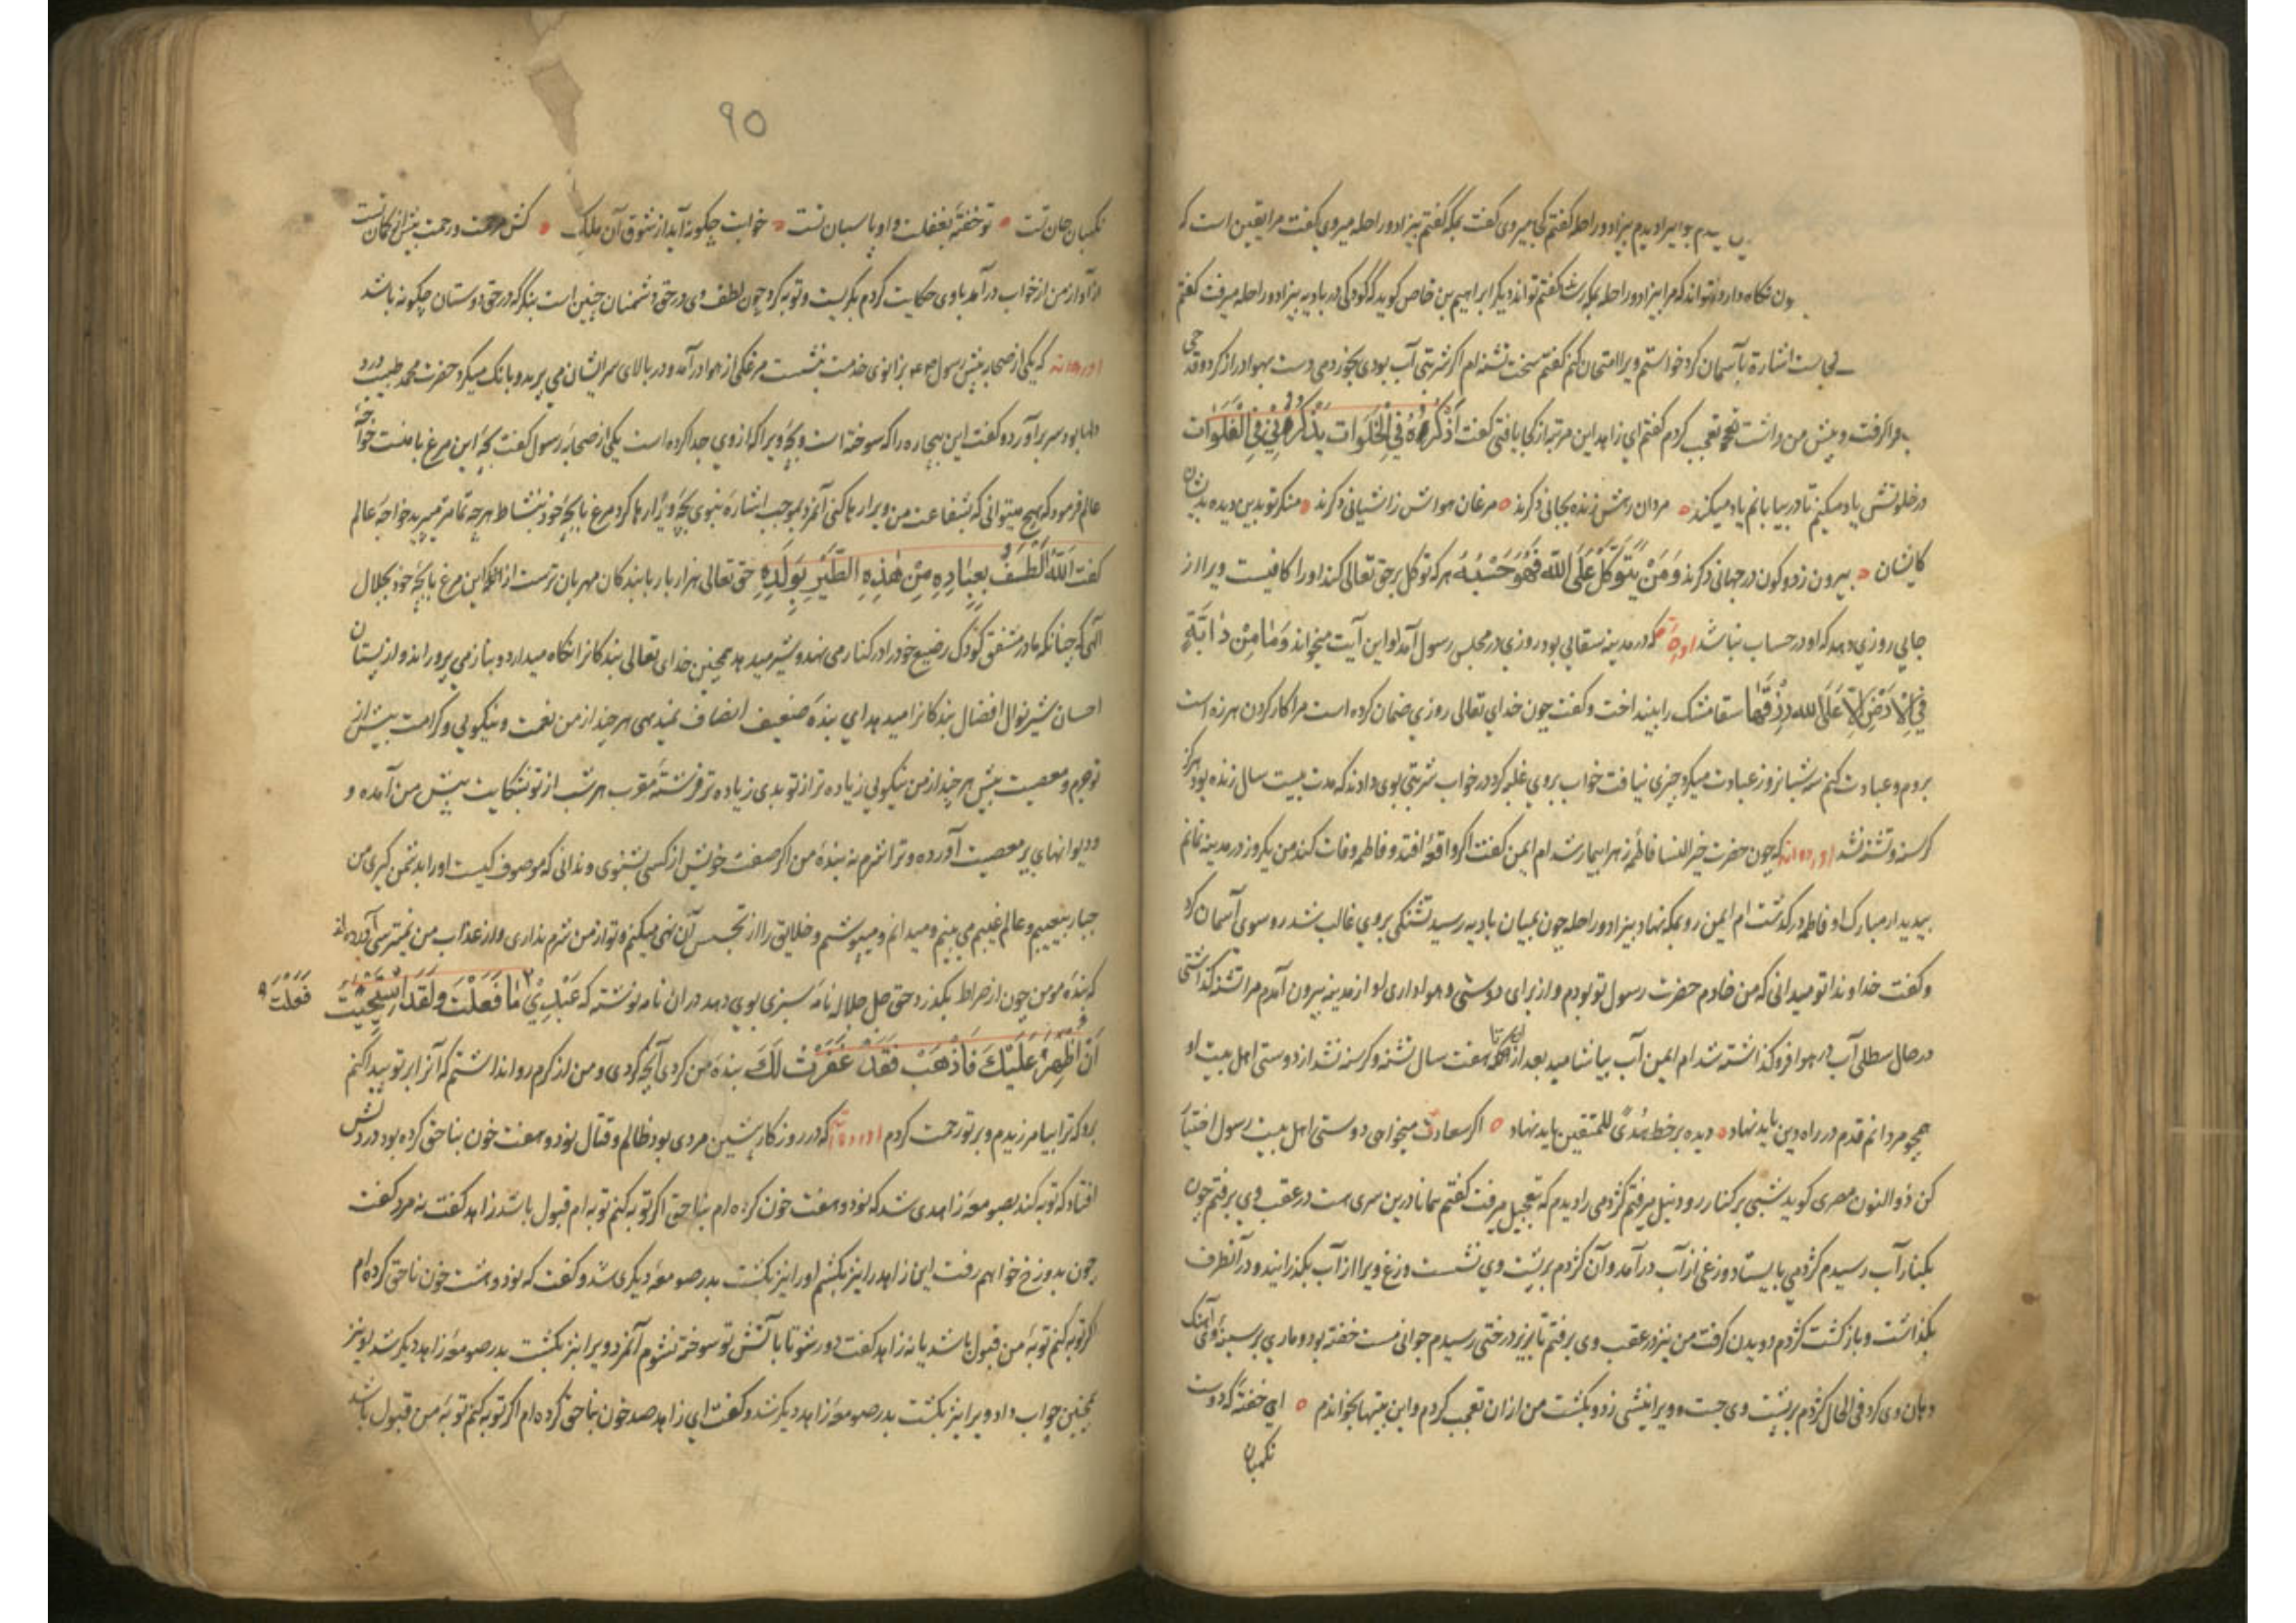 دیدم بی زاد و راحله گفتم کجا میروی گفت بمکه گفتم بیزاد و راحله میروی گفت مرا یقین است که
نگاه دارد تواند که مرا بیزاد و راحله بمکه رساند گفتم تواند دیگر ابراهیم بن خاص کوید که کودکی در بادیه بیزاد و راحله میرفت گفتم
اشارة بآسمان کرد خواستم ویرا امتحان کنم گفتم سخت تشنه ام اگر شربتی آب بودی بخوردمی دست بهوا دراز کرد و قدحی
فرا گرفت و پیش من داشت تعجب کردم گفتم ای زاهد این مرتبه از کجا یافتی گفت اَذْکُرُهُ فِی الْخَلَوَات یَذْکُرُنِی فِی الْفَلَوَات
در خلوتش یاد میکنم تا در بیابانم یاد میکند ٥ مردان رهش زنده بجانی دگرند ٥ مرغان هواش ز آشیانی دگرند ٥ منگر تو بدین دیده بدیشان
کایشان ٥ بیرون ز دو کون در جهانی دگرند وَمَنْ یَتَوَکَّلْ عَلَی اللّه فَهُوَ حَسْبُهُ هر که توکل بر حق تعالی کند او را کافیست ویرا از
جایی روزی دهد که او در حساب نباشد در مدینه سقایی بود روزی در مجلس رسول آمد او این آیت میخواند وَمَا مِنْ دَابَّةٍ
فِی الْاَرْضِ اِلَّا عَلَی الله رِزْقُهَا سقا مشک را بینداخت و گفت چون خدای تعالی روزی ضمان کرده است مرا کار کردن هرزه است
بروم و عبادت کنم سه شبانروز عبادت میکرد چیزی نیافت خواب بروی غلبه کرد در خواب شربتی بوی دادند که مدت بیست سال زنده بود هرگز
گرسنه و تشنه نشد آورده اند که چون حضرت خیر النسا فاطمه زهرا بیمار شد ام ایمن گفت اگر واقعه افتد و فاطمه وفات کند من یکروز در مدینه نمانم
بیدیدار مبارک او فاطمه درگذشت ام ایمن رو بمکه نهاد بیزاد و راحله چون بمیان بادیه رسید تشنگی بروی غالب شد رو سوی آسمان کرد
و گفت خداوندا تو میدانی که من خادم حضرت رسول تو بودم و از برای دوستی و هواداری او از مدینه بیرون آمدم مرا تشنه گذاشتی
در حال سطلی آب در هوا فرو گذاشته شد ام ایمن آب بیاشامید بعد از هفت سال تشنه و گرسنه نشد از دوستی اهل بیت او
همچو مردانم قدم در راه دین باید نهاد ٥ دیده بر خط هُدًی للمتقین باید نهاد ٥ اگر سعادت میخواهی دوستی اهل بیت رسول اختیار
کن ذو النون مصری کوید شبی بر کنار رود نیل میرفتم کژدمی را دیدم که بتعجیل میرفت گفتم همانا درین سری هست در عقب وی برفتم چون
بکنار آب رسیدم کژدمی بایستاد وزغی از آب درآمد و آن کژدم بر پشت وی نشست وزغ ویرا از آب بگذرانید و در آنطرف
بگذاشت و بازگشت کژدم دویدن گرفت من نیز در عقب وی برفتم تا بزیر درختی رسیدم جوانی مست خفته بود و ماری بر سینه وی آهنگ
دهان وی کرد فی الحال کژدم بر پشت وی جست و ویرا نیشی زد و بکشت من از ان تعجب کردم و این بیتها بخواندم ٥ ای خفته که دوست
نگهبان
٩٥
نگهبان جان تست ٥ تو خفته بغفلت و او پاسبان تست ٥ خوابت چگونه آید از شوق آن ملک ٥ کش و رحمت بیش از گمان تست
از آواز من از خواب درآمد باوی حکایت کردم بگریست و توبه کرد چون لطف وی در حق دشمنان چنین است بنگر که در حق دوستان چگونه باشد
آورده اند که یکی از صحابه پیش رسول بزانوی خدمت بنشست مرغکی از هوا درآمد و در بالای سر ایشان می پرید و بانک میکرد حضرت محمد طبیب درد
دلها بود سر برآورد و گفت این بیچاره را که سوخته است و بچه ویرا که از وی جدا کرده است یکی از صحابه رسول گفت بچه این مرغ با منست خواجه
عالم فرمود که هیچ میتوانی که بشفاعت من ویرا رها کنی آنمرد بموجب اشاره نبوی بچه ویرا رها کرد مرغ با بچه خود بنشاط هرچه تمامتر میپرید خواجه عالم
گفت اَللّهُ اَلْطَفُ بِعِبَادِهِ مِنْ هٰذِهِ الطَّیْرِ بِوَلَدِهِ حق تعالی هزار بار با بندگان مهربان ترست از آنکه این مرغ با بچه خود بجلال
الهی که چنانکه مادر مشفق کودک رضیع خود را در کنار می نهد و شیر میدهد همچنین خدای تعالی بندگانرا نگاه میدارد و بناز می پروراند و از پستان
احسان شیر نوال افضال بندگانرا میدهد ای بنده ضعیف انصاف نمیدهی هرچند از من نعمت و نیکویی و کرامت بیش از
تو جرم و معصیت بیش هرچند از من نیکویی زیاده تر از تو بدی زیاده تر فرشته مقرب هر شب از تو بشکایت پیش من آمده و
و دیوانهای پر معصیت آورده و ترا شرم نه بنده من اگر صفت خویش از کسی بشنوی و ندانی که موصوف کیست او را بدشمن گیری من
جبار بیعیبم و عالم غیبم می بینم و میدانم و میپوشم و خلایق را از تجسس آن نهی میکنم و تو از من شرم نداری و از عذاب من نمیترسی آورده اند
که بنده مومن چون از صراط بگذرد حق جل جلاله نامه سبزی بوی دهد در ان نامه نوشته که عَبْدِی فَعَلْتَ مَا فَعَلْتَ وَلَقَد اسْتَحْیَیْتُ
اَنْ اُظْهِرَ عَلَیْکَ فَاذْهَبْ فَقَدْ غَفَرْتُ لَکَ بنده من کردی آنچه کردی و من از کرم روا نداشتم که آنرا بر تو پیدا کنم
برو که ترا بیامرزیدم و بر تو رحمت کردم که در روزگار پیشین مردی بود ظالم و قتال نود و هفت خون بناحق کرده بود در دلش
افتاد که توبه کند بصومعه زاهدی شد که نود و هفت خون کرده ام بناحق اگر توبه کنم توبه ام قبول باشد زاهد گفت نه مرد گفت
چون بدوزخ خواهم رفت این زاهد را نیز بکشم او را نیز بکشت بدر صومعه دیگری شد و گفت که نود و هشت خون ناحق کرده ام
اگر توبه کنم توبه من قبول باشد یا نه زاهد گفت دور شو تا باآتش تو سوخته نشوم آنمرد ویرا نیز بکشت بدر صومعه زاهد دیگر شد او نیز
همچنین جواب داد ویرا نیز بکشت بدر صومعه زاهد دیگر شد و گفت ای زاهد صد خون بناحق کرده ام اگر توبه کنم توبه من قبول باشد